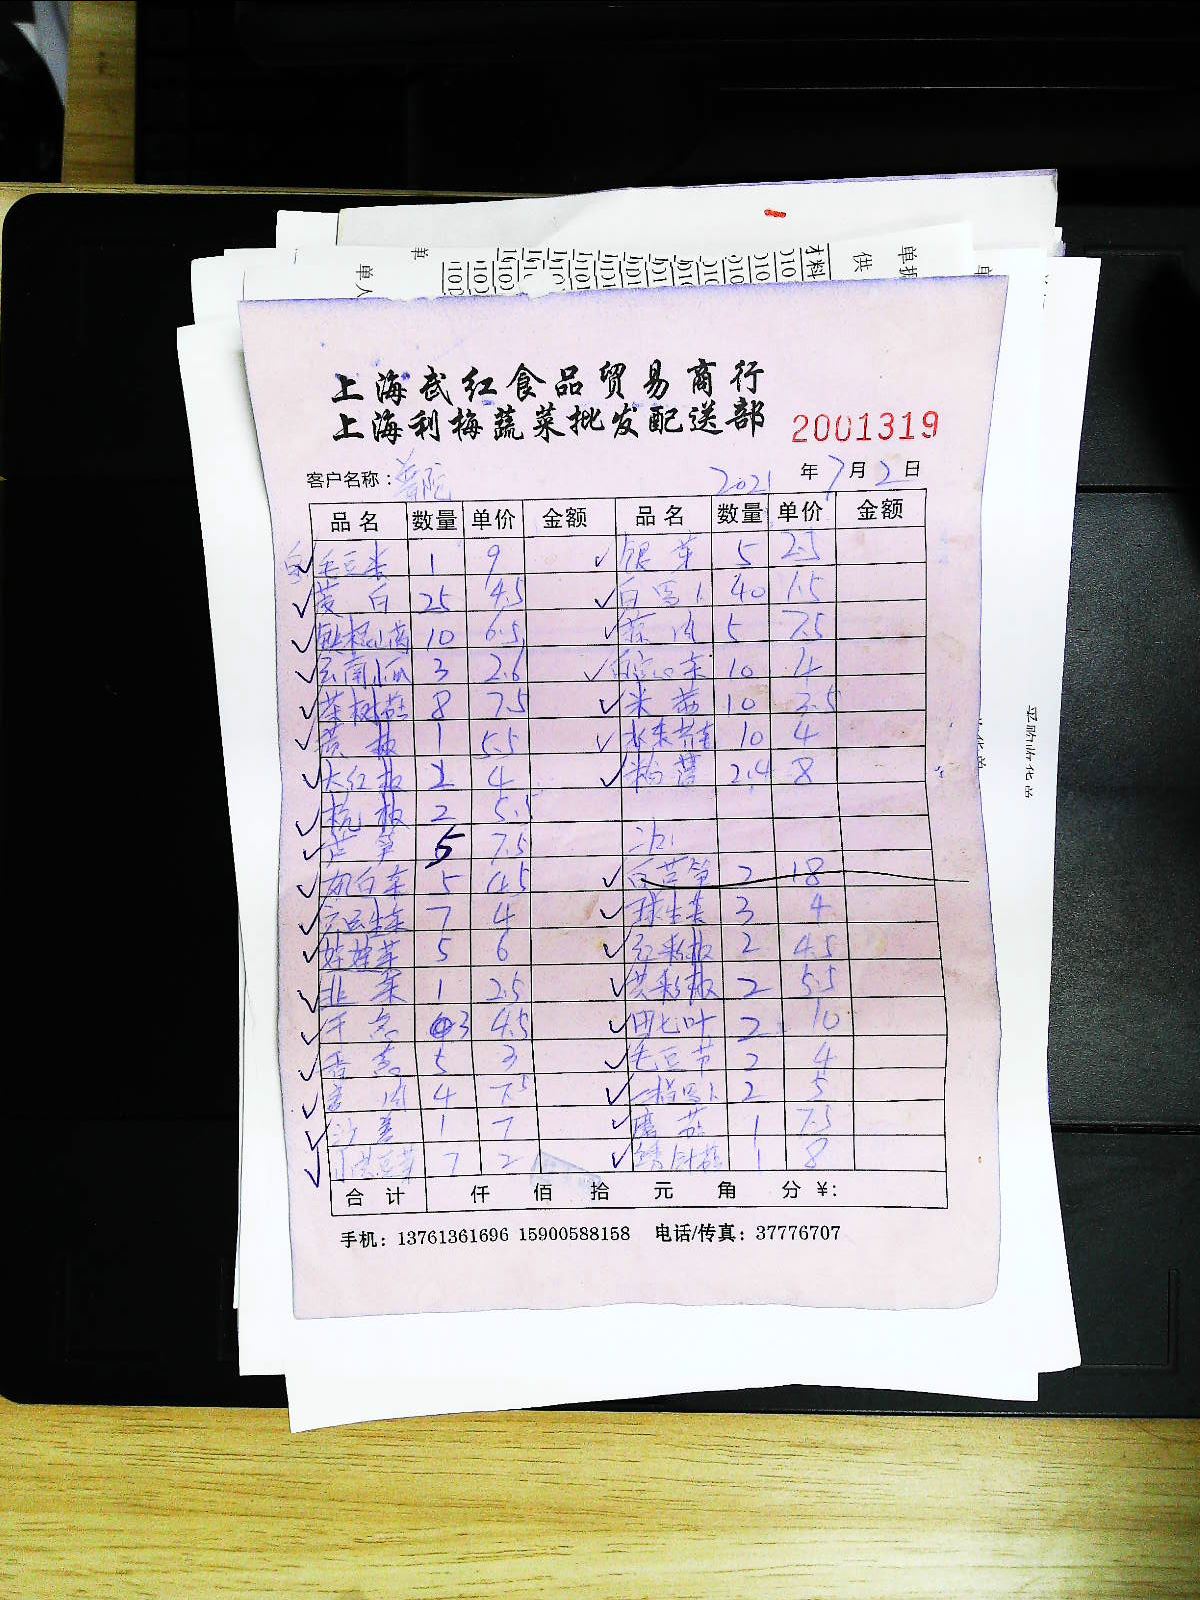 上海武红食品贸易商行
上海利梅蔬菜批发配送部 2001319
客户名称：普陀 2021 年 7 月 2 日
品名 数量 单价 金额 品名 数量 单价 金额
毛豆米 1 9 银芽 5 2.5
茭白 25 4.5 白萝卜 40 1.5
10 6.5 蒜肉 5 7.5
云南小瓜 3 2.6 10 4
茶树菇 8 7.5 米苋 10 3.5
黄椒 1 5.5 水果芹 10 4
大红椒 4 2.4 8
杭椒 2 5.5
芦笋 5 7.5
5 4.5 白芦笋 2 18
生菜 7 4 球生菜 3 4
娃娃菜 5 6 红彩椒 2 4.5
韭菜 1 2.5 黄彩椒 2 5.5
干葱 3 4.5 田七叶 2 10
香葱 5 3 毛豆节 2 4
姜肉 4 7.5 2 5
沙姜 1 7 蘑菇 1 7.5
黄豆芽 7 2 1 8
合计 仟 佰 拾 元 角 分 ¥:
手机：13761361696 15900588158 电话/传真：37776707
单
单人
材料
供
单据
采购收货单